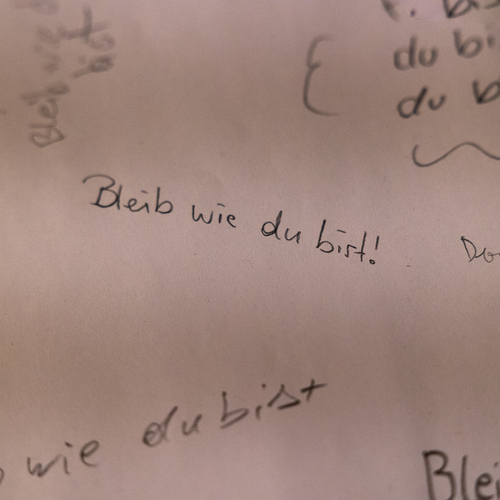 Bleib wie
bist
du bi
du b
Bleib wie du bist!
wie du bist
Blei